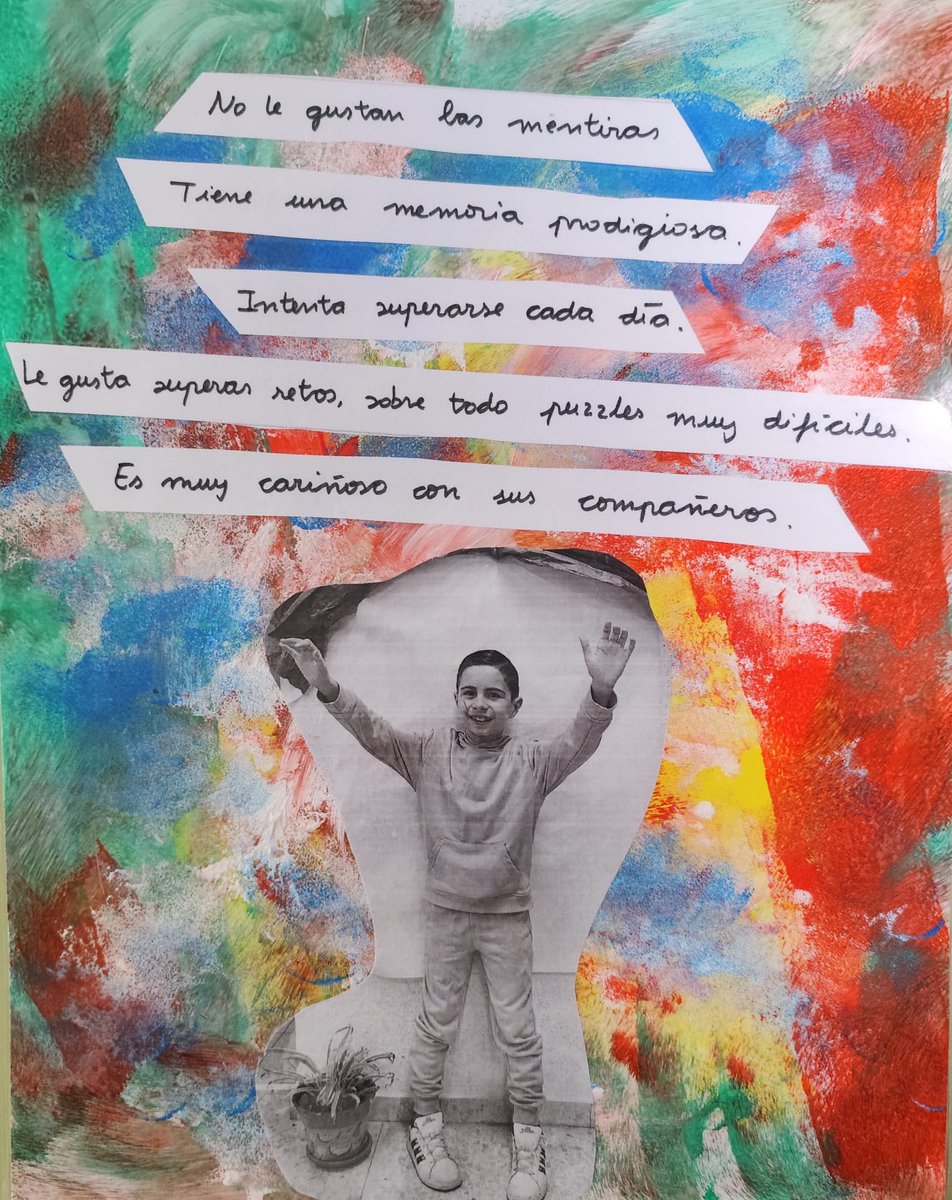 No le gustan las mentiras
Tiene una memoria prodigiosa.
Intenta superarse cada día.
Le gusta superar retos, sobre todo puzzles muy difíciles.
Es muy cariñoso con sus compañeros.